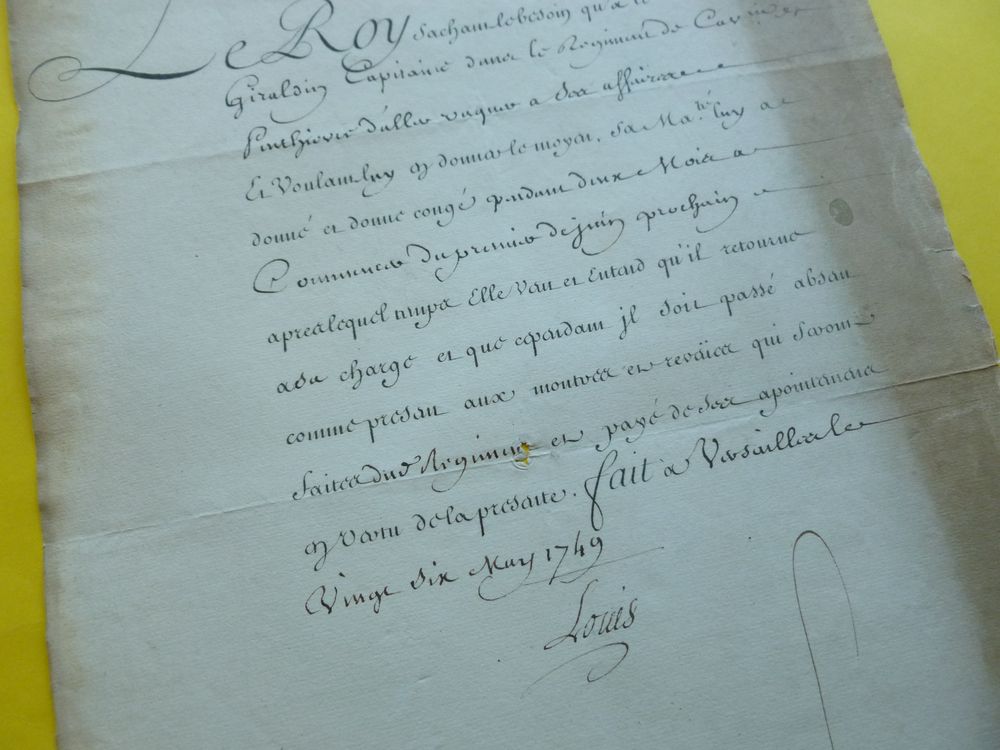 Le Roy sachant le besoin qu'a le
Giraldin Capitaine dans le Regiment de Cav.ie
Penthievre d'aller vaquer a Ses affaires
Et Voulant luy en donner le moyen, Sa Ma.té luy a
donné et donne congé pendant deux Mois a
Commencer du premier de juin prochain
apres lequel temps Elle veut et Entend qu'il retourne
a Sa charge et que cependant jl Soit passé absent
comme present aux montres et reveües qui Seront
faites dud. Regiment et payé de Ses apointemens
en vertu de la presente. fait à Versailles le
Vingt Six May 1749
Louis